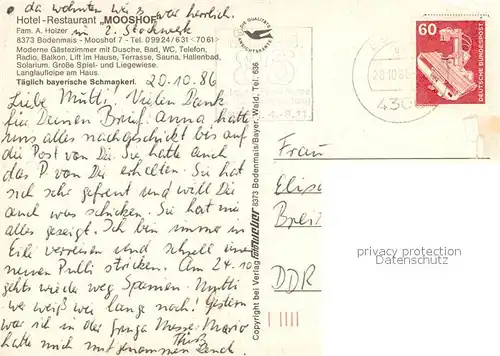 da wohnten wir es war herrlich.
Hotel-Restaurant „MOOSHOF"
Fam. A. Holzer
in 2. Stockwerk
8373 Bodenmais - Mooshof 7 - Tel. 09924/631 <7061>
Moderne Gästezimmer mit Dusche, Bad, WC, Telefon,
Radio, Balkon. Lift im Hause, Terrasse, Sauna, Hallenbad,
Solarium. Große Spiel- und Liegewiese.
Langlaufloipe am Haus.
Täglich bayerische Schmankerl.
20.10.86
Liebe Mutti! Vielen Dank
für Deinen Brief. Anna hatte
uns alles nachgeschickt bis auf
die Post von Dir. Sie hatte auch
das P von Dir erhalten. Sie hat
sich sehr gefreut und will Dir
auch was schicken. Sie hat mir
alles gezeigt. Ich bin immer in
Eile verreisen und schnell einen
neuen Pulli stricken. Am 24.10
gehts wieder weg Spanien. Mutti
wer weiß wie lange noch! Gestern
war ich in der Messe. Mario
hatte mich mitgenommen
Copyright bei Verlag 8373 Bodenmais/Bayer. Wald, Tel. 636
60
DEUTSCHE BUNDESPOST
20.10.86
430
Frau
Elis
Breit
DDR
privacy protection
Datenschutz